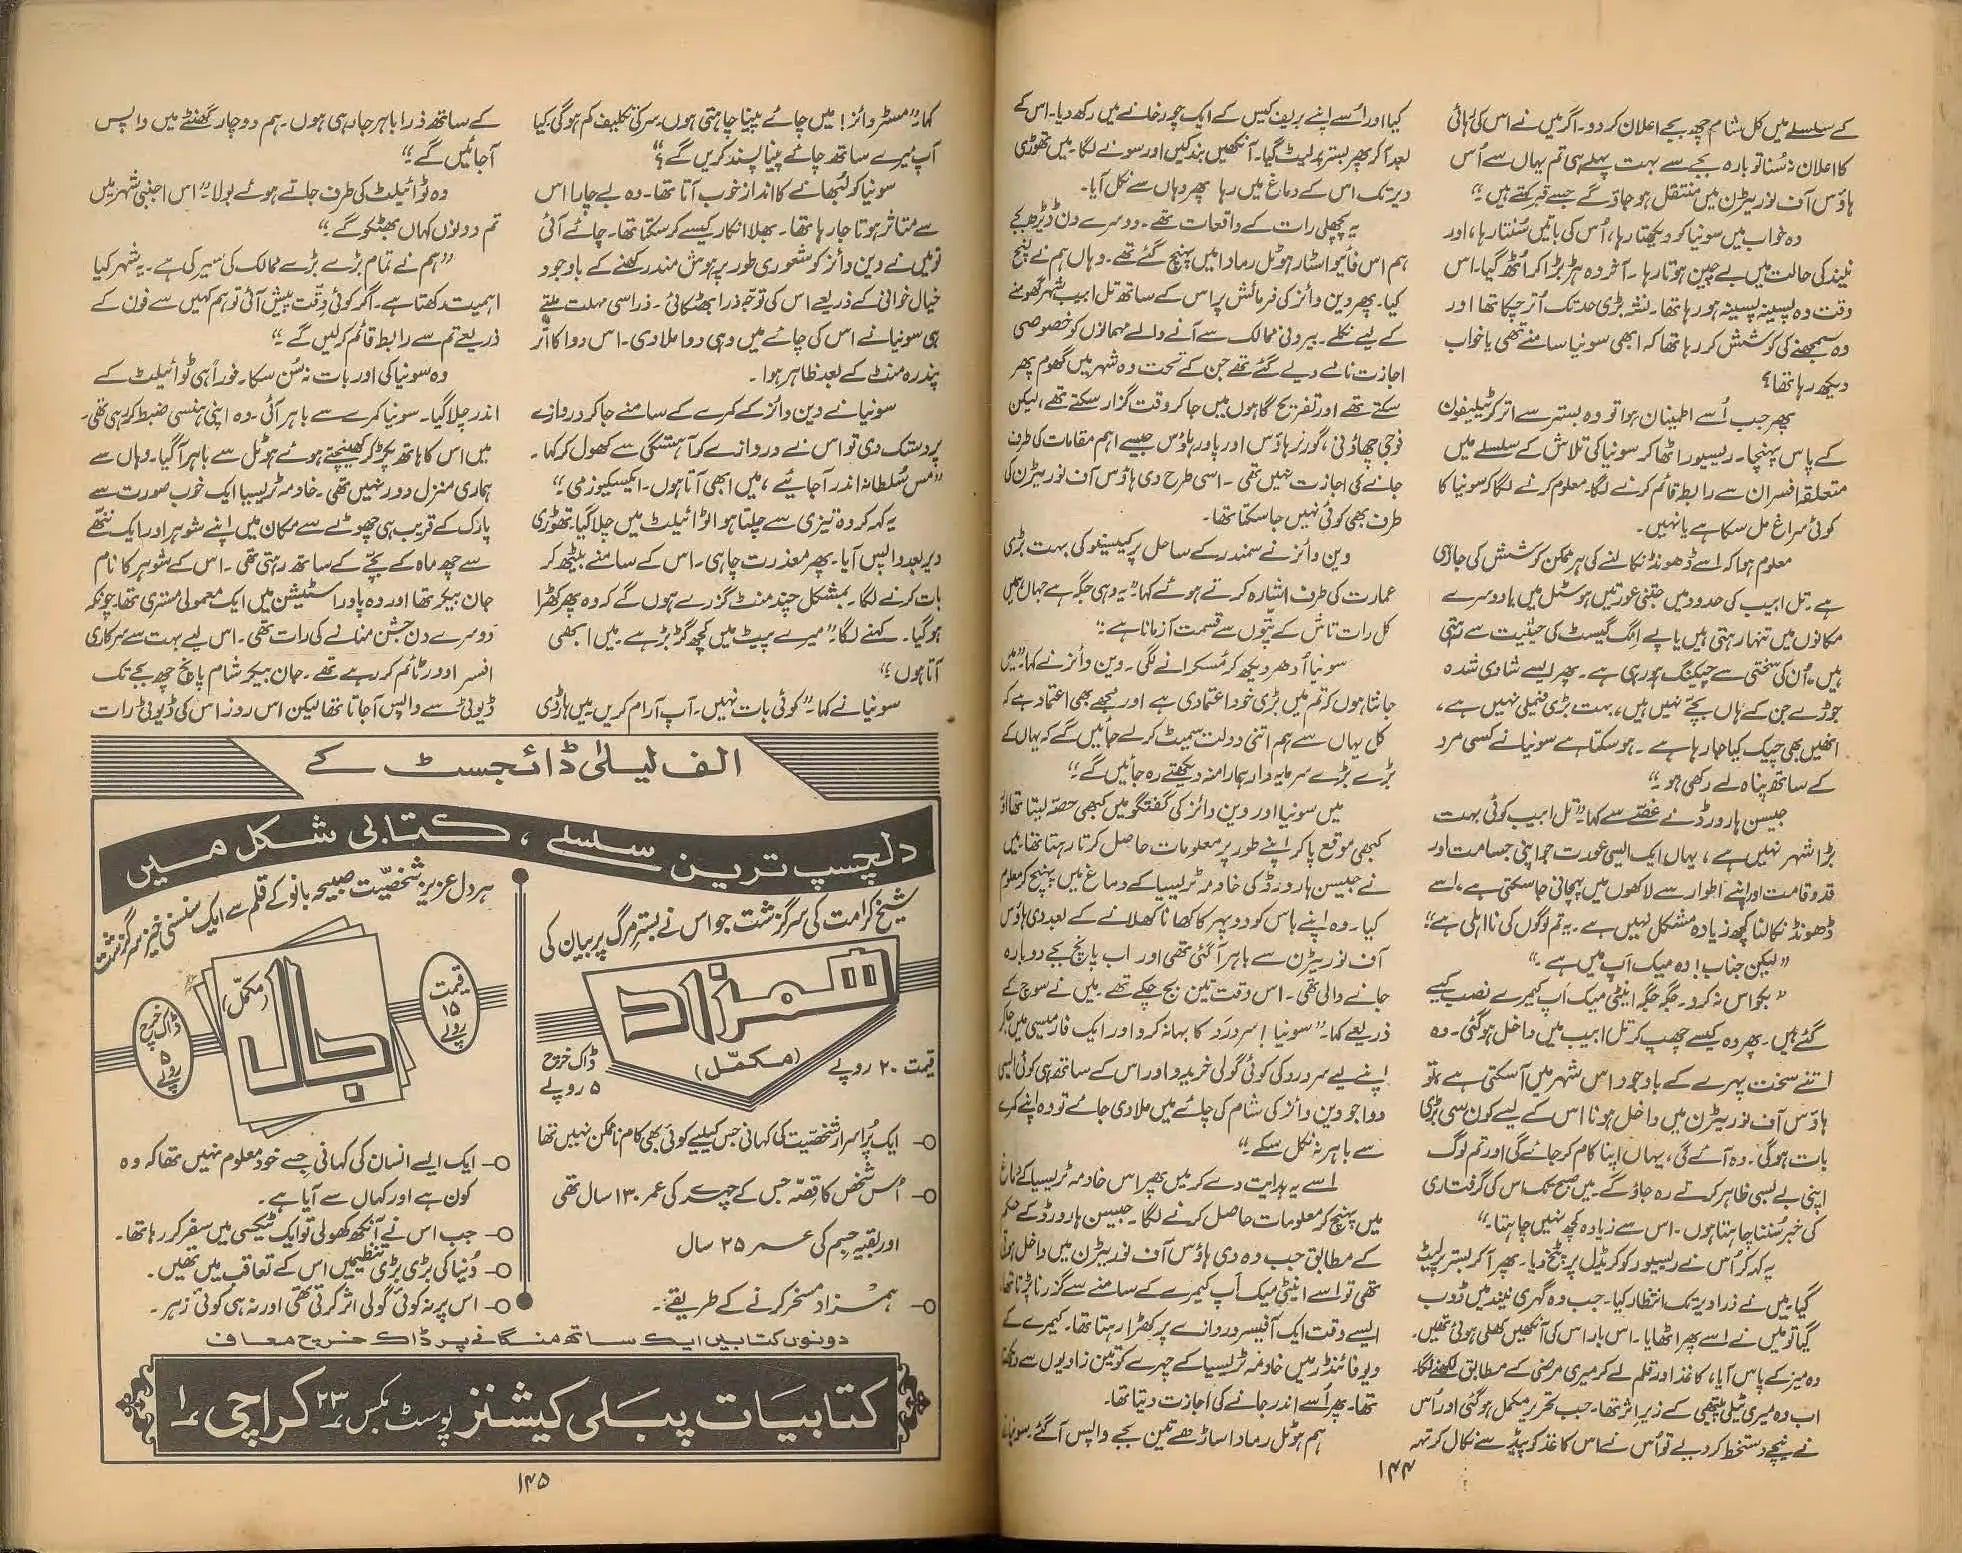 کے سلسلے میں کل شام چھ بجے اعلان کردو۔ اگر میں نے اس کی رہائی
کا اعلان نہ سُنا تو بارہ بجے سے بہت پہلے ہی تم یہاں سے اُس
ہاؤس آف نوریٹرن میں منتقل ہو جاؤ گے جسے قبر کہتے ہیں۔“
وہ خواب میں سونیا کو دیکھتا رہا، اُس کی باتیں سُنتا رہا، اور
نیند کی حالت میں بے چین ہوتا رہا۔ آخر وہ ہڑبڑا کر اُٹھ گیا۔ اس
وقت وہ پسینہ پسینہ ہو رہا تھا۔ نشہ بڑی حد تک اُتر چکا تھا اور
وہ سمجھنے کی کوشش کر رہا تھا کہ ابھی سونیا سامنے تھی یا خواب
دیکھ رہا تھا؟
پھر جب اُسے اطمینان ہوا تو وہ بستر سے اتر کر ٹیلیفون
کے پاس پہنچا۔ ریسیور اٹھا کر سونیا کی تلاش کے سلسلے میں
متعلقہ افسران سے رابطہ قائم کرنے لگا۔ معلوم کرنے لگا کہ سونیا کا
کوئی سراغ مل سکا ہے یا نہیں۔
معلوم ہوا کہ اسے ڈھونڈ نکالنے کی ہر ممکن کوشش کی جا رہی
ہے۔ تل ابیب کی حدود میں جتنی عورتیں ہوسٹل میں یا دوسرے
مکانوں میں تنہا رہتی ہیں یا پے انگ گیسٹ کی حیثیت سے رہتی
ہیں۔ اُن کی سختی سے چیکنگ ہو رہی ہے۔ پھر ایسے شادی شدہ
جوڑے جن کے ہاں بچے نہیں ہیں، بہت بڑی فیملی نہیں ہے،
انھیں بھی چیک کیا جا رہا ہے۔ ہو سکتا ہے سونیا نے کسی مرد
کے ساتھ پناہ لے رکھی ہو۔“
جیسن ہارورڈ نے غصے سے کہا۔ ”تل ابیب کوئی بہت
بڑا شہر نہیں ہے، یہاں ایک ایسی عورت جو اپنی جسامت اور
قد و قامت اور اپنے اطوار سے لاکھوں میں پہچانی جا سکتی ہے، اسے
ڈھونڈ نکالنا کچھ زیادہ مشکل نہیں ہے۔ یہ تم لوگوں کی نا اہلی ہے“
”لیکن جناب! وہ میک اپ میں ہے۔“
”بکواس نہ کرو۔ جگہ جگہ اینٹی میک اَپ کیمرے نصب کیے
گئے ہیں۔ پھر وہ کیسے چھپ کر تل ابیب میں داخل ہو گئی۔ وہ
اتنے سخت پہرے کے باوجود اس شہر میں آ سکتی ہے، تو
ہاؤس آف نوریٹرن میں داخل ہونا اس کے لیے کون سی بڑی
بات ہوگی۔ وہ آئے گی، یہاں اپنا کام کر جائے گی اور تم لوگ
اپنی بے بسی ظاہر کرتے رہ جاؤ گے۔ میں صبح تک اس کی گرفتاری
کی خبر سُننا چاہتا ہوں۔ اس سے زیادہ کچھ نہیں چاہتا۔“
یہ کہہ کر اُس نے ریسیور کو کریڈل پر پٹخ دیا۔ پھر آ کر بستر پر لیٹ
گیا۔ میں نے ذرا دیر تک انتظار کیا۔ جب وہ گہری نیند میں ڈوب
گیا تو میں نے اسے پھر اٹھایا۔ اس بار اس کی آنکھیں کھلی ہوئی تھیں۔
وہ میز کے پاس آیا، کاغذ اور قلم لے کر میری مرضی کے مطابق لکھنے لگا۔
اب وہ میری ٹیلی پیتھی کے زیر اثر تھا۔ جب تحریر مکمل ہو گئی اور اُس
نے نیچے دستخط کر دیے تو اُس نے اس کاغذ کو پیڈ سے نکال کر تہہ
کیا اور اُسے اپنے بریف کیس کے ایک چور خانے میں رکھ دیا۔ اس کے
بعد آ کر پھر بستر پر لیٹ گیا۔ آنکھیں بند کیں اور سونے لگا۔ میں تھوڑی
دیر تک اس کے دماغ میں رہا پھر وہاں سے نکل آیا۔
یہ پچھلی رات کے واقعات تھے۔ دوسرے دن ڈیڑھ بجے
ہم اس فائیو اسٹار ہوٹل رمادا میں پہنچ گئے تھے۔ وہاں ہم نے لنچ
کیا۔ پھر وین وائز کی فرمائش پر اس کے ساتھ تل ابیب شہر گھومنے
کے لیے نکلے۔ بیرونی ممالک سے آنے والے مہمانوں کو خصوصی
اجازت نامے دیے گئے تھے جن کے تحت وہ شہر میں گھوم پھر
سکتے تھے اور تفریح گاہوں میں جا کر وقت گزار سکتے تھے، لیکن
فوجی چھاؤنی، گورنر ہاؤس اور پاور ہاؤس جیسے اہم مقامات کی طرف
جانے کی اجازت نہیں تھی۔ اسی طرح دی ہاؤس آف نوریٹرن کی
طرف بھی کوئی نہیں جا سکتا تھا۔
وین وائز نے سمندر کے ساحل پر کیسینو کی بہت بڑی
عمارت کی طرف اشارہ کرتے ہوئے کہا۔ ”یہ وہی جگہ ہے جہاں ہمیں
کل رات تاش کے پتوں سے قسمت آزمانا ہے۔“
سونیا اُدھر دیکھ کر مُسکرانے لگی۔ وین وائز نے کہا۔ ”میں
جانتا ہوں کہ تم میں بڑی خود اعتمادی ہے اور مجھے بھی اعتماد ہے کہ
کل یہاں سے ہم اتنی دولت سمیٹ کر لے جائیں گے کہ یہاں کے
بڑے بڑے سرمایہ دار ہمارا منہ دیکھتے رہ جائیں گے۔“
میں سونیا اور وین وائز کی گفتگو میں کبھی حصہ لیتا تھا اور
کبھی موقع پا کر اپنے طور پر معلومات حاصل کرتا رہتا تھا۔ میں
نے جیسن ہارورڈ کی خادمہ ٹریسیا کے دماغ میں پہنچ کر معلوم
کیا۔ وہ اپنے باس کو دوپہر کا کھانا کھلانے کے بعد دی ہاؤس
آف نوریٹرن سے باہر آ گئی تھی اور اب پانچ بجے دوبارہ
جانے والی تھی۔ اس وقت تین بج چکے تھے۔ میں نے سوچ کے
ذریعے کہا۔ ”سونیا! سردرد کا بہانہ کرو اور ایک فارمیسی میں جا کر
اپنے لیے سردرد کی کوئی گولی خریدو اور اس کے ساتھ ہی کوئی ایسی
دوا جو وین وائز کی شام کی چائے میں ملا دی جائے تو وہ اپنے کمرے
سے باہر نہ نکل سکے۔“
اسے یہ ہدایت دے کر میں پھر اس خادمہ ٹریسیا کے دماغ
میں پہنچ کر معلومات حاصل کرنے لگا۔ جیسن ہارورڈ کے حکم
کے مطابق جب وہ دی ہاؤس آف نوریٹرن میں داخل ہوتی
تھی تو اسے اینٹی میک اَپ کیمرے کے سامنے سے گزرنا پڑتا تھا
ایسے وقت ایک آفیسر دروازے پر کھڑا رہتا تھا۔ کیمرے کے
ویو فائنڈر میں خادمہ ٹریسیا کے چہرے کو تین زاویوں سے دیکھتا
تھا۔ پھر اُسے اندر جانے کی اجازت دیتا تھا۔
ہم ہوٹل رمادا ساڑھے تین بجے واپس آ گئے۔ سونیا نے
۱۴۴
کہا۔ ”مسٹر وائز! میں چائے پینا چاہتی ہوں۔ سر کی تکلیف کم ہوگی۔ کیا
آپ میرے ساتھ چائے پینا پسند کریں گے؟“
سونیا کو لُبھانے کا انداز خوب آتا تھا۔ وہ بے چارا اس
سے متاثر ہوتا جا رہا تھا۔ بھلا انکار کیسے کر سکتا تھا۔ چائے آئی
تو میں نے وین وائز کو شعوری طور پر ہوش مند رکھنے کے باوجود
خیال خوانی کے ذریعے اس کی توجہ ذرا بھٹکائی۔ ذرا سی مہلت ملتے
ہی سونیا نے اس کی چائے میں وہی دوا ملا دی۔ اس دوا کا اثر
پندرہ منٹ کے بعد ظاہر ہوا۔
سونیا نے وین وائز کے کمرے کے سامنے جا کر دروازے
پر دستک دی تو اس نے دروازے کو آہستگی سے کھول کر کہا۔
”مس سُلطانہ اندر آ جائیے، میں ابھی آتا ہوں۔ ایکسکیوز می“
یہ کہہ کر وہ تیزی سے چلتا ہوا ٹوائیلٹ میں چلا گیا۔ تھوڑی
دیر بعد واپس آیا۔ پھر معذرت چاہی۔ اس کے سامنے بیٹھ کر
بات کرنے لگا۔ بمشکل چند منٹ گزرے ہوں گے کہ وہ پھر کھڑا
ہو گیا۔ کہنے لگا۔ ”میرے پیٹ میں کچھ گڑبڑ ہے۔ میں ابھی
آتا ہوں“
سونیا نے کہا۔ ”کوئی بات نہیں۔ آپ آرام کریں میں ہارڈی
کے ساتھ ذرا باہر جا رہی ہوں۔ ہم دو چار گھنٹے میں واپس
آ جائیں گے۔“
وہ ٹوائیلٹ کی طرف جاتے ہوئے بولا۔ ”اس اجنبی شہر میں
تم دونوں کہاں بھٹکو گے۔“
”ہم نے تمام بڑے بڑے ممالک کی سیر کی ہے۔ یہ شہر کیا
اہمیت رکھتا ہے۔ اگر کوئی دقّت پیش آئی تو ہم کہیں سے فون کے
ذریعے تم سے رابطہ قائم کر لیں گے۔“
وہ سونیا کی اور بات نہ سُن سکا۔ فوراً ہی ٹوائیلٹ کے
اندر چلا گیا۔ سونیا کمرے سے باہر آئی۔ وہ اپنی ہنسی ضبط کر رہی تھی۔
میں اس کا ہاتھ پکڑ کر کھینچتے ہوئے ہوٹل سے باہر آ گیا۔ وہاں سے
ہماری منزل دور نہیں تھی۔ خادمہ ٹریسیا ایک خوب صورت سے
پارک کے قریب ہی چھوٹے سے مکان میں اپنے شوہر اور ایک ننھے
سے چھ ماہ کے بچے کے ساتھ رہتی تھی۔ اس کے شوہر کا نام
جان بیکر تھا اور وہ پاور اسٹیشن میں ایک معمولی مستری تھا۔ چونکہ
دوسرے دن جشن منانے کی رات تھی۔ اس لیے بہت سے سرکاری
افسر اوور ٹائم کر رہے تھے۔ جان بیکر شام پانچ چھ بجے تک
ڈیوٹی سے واپس آ جاتا تھا لیکن اس روز اس کی ڈیوٹی رات
الف لیلیٰ ڈائجسٹ کے
دلچسپ ترین سلسلے، کتابی شکل میں
شیخ کرامت کی سرگزشت جو اس نے بسترِ مرگ پر بیان کی
ہمزاد
(مکمّل)
قیمت ۲۰ روپے
ڈاک خرچ
۵ روپے
ایک پُراسرار شخصیّت کی کہانی جس کیلیے کوئی بھی کام ناممکن نہیں تھا
اُس شخص کا قصّہ جس کے چہرے کی عمر ۱۳۰ سال تھی
اور بقیہ جسم کی عمر ۲۵ سال
ہمزاد مسخر کرنے کے طریقے۔
ہر دل عزیز شخصیّت صبیحہ بانو کے قلم سے ایک سنسنی خیز سرگزشت
جال
(مکمّل)
قیمت
۱۵
روپے
ڈاک خرچ
۵
روپے
ایک ایسے انسان کی کہانی جسے خود معلوم نہیں تھا کہ وہ
کون ہے اور کہاں سے آیا ہے۔
جب اس نے آنکھ کھولی تو ایک ٹیکسی میں سفر کر رہا تھا۔
دُنیا کی بڑی بڑی تنظیمیں اس کے تعاقب میں تھیں۔
اس پر نہ کوئی گولی اثر کرتی تھی اور نہ ہی کوئی زہر۔
دونوں کتابیں ایک ساتھ منگانے پر ڈاک خرچ معاف
کتابیات پبلی کیشنز پوسٹ بکس ۲۳ کراچی ۱
۱۴۵